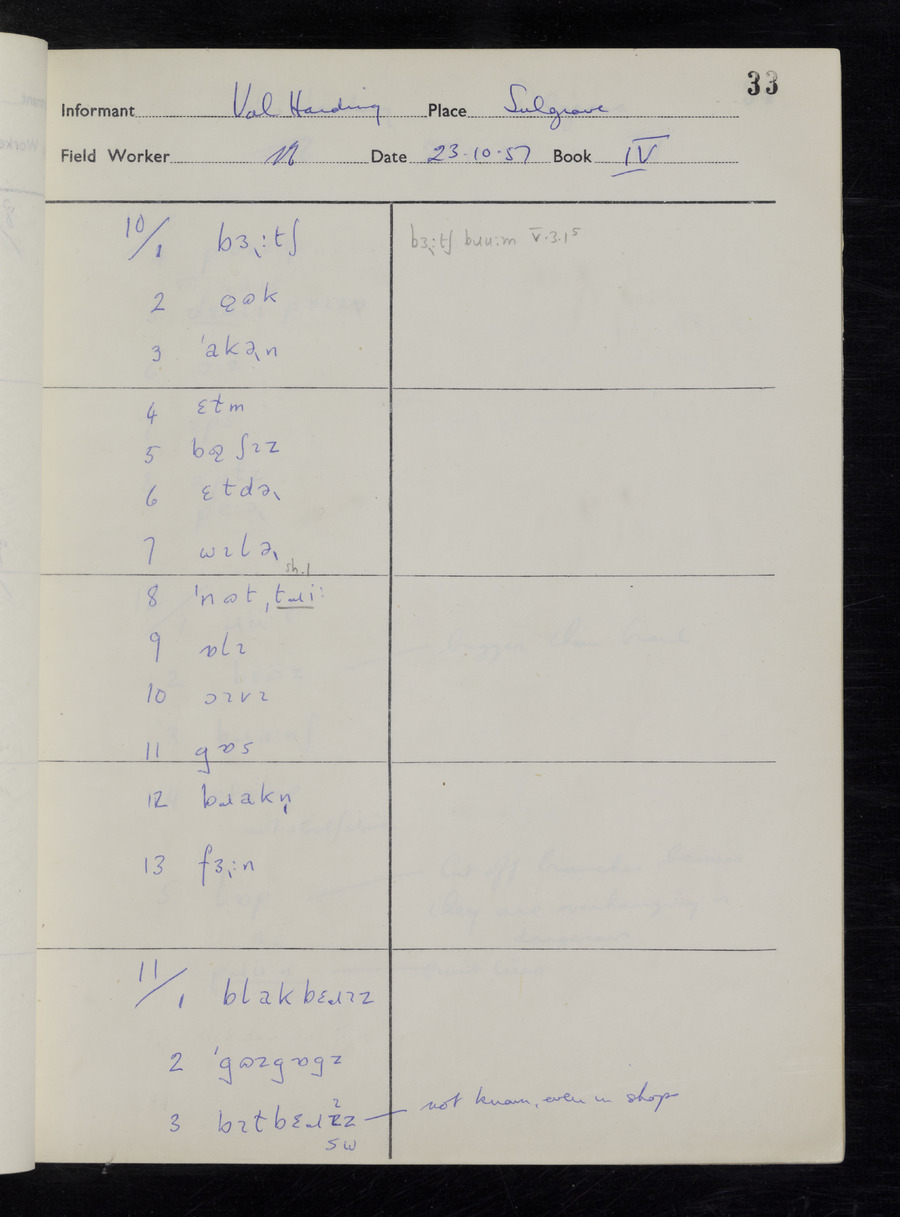 33
Informant Val Harding Place Sulgrave
Field Worker Date 23·10·57 Book IV
10/1 bɜ˞:tʃ bɜ˞:tʃ bɹuːm V.3.1⁵
2
3 'akə˞n
4 ɛɫm
5 ʃɪz
6 ɛɫdə˞
7 wɪlə˞
sh.1
8 'nɷt ˌtɹiː
9 ɒlɪ
10 ɔɪvɪ
11 gɒs
12 bɹakn̩
13 fɜ˞:n
11/1 blakbɛɹɪz
2 'gɷzgɒgz
3 bɪɫbɛɹɪz not known, even in shop
SW